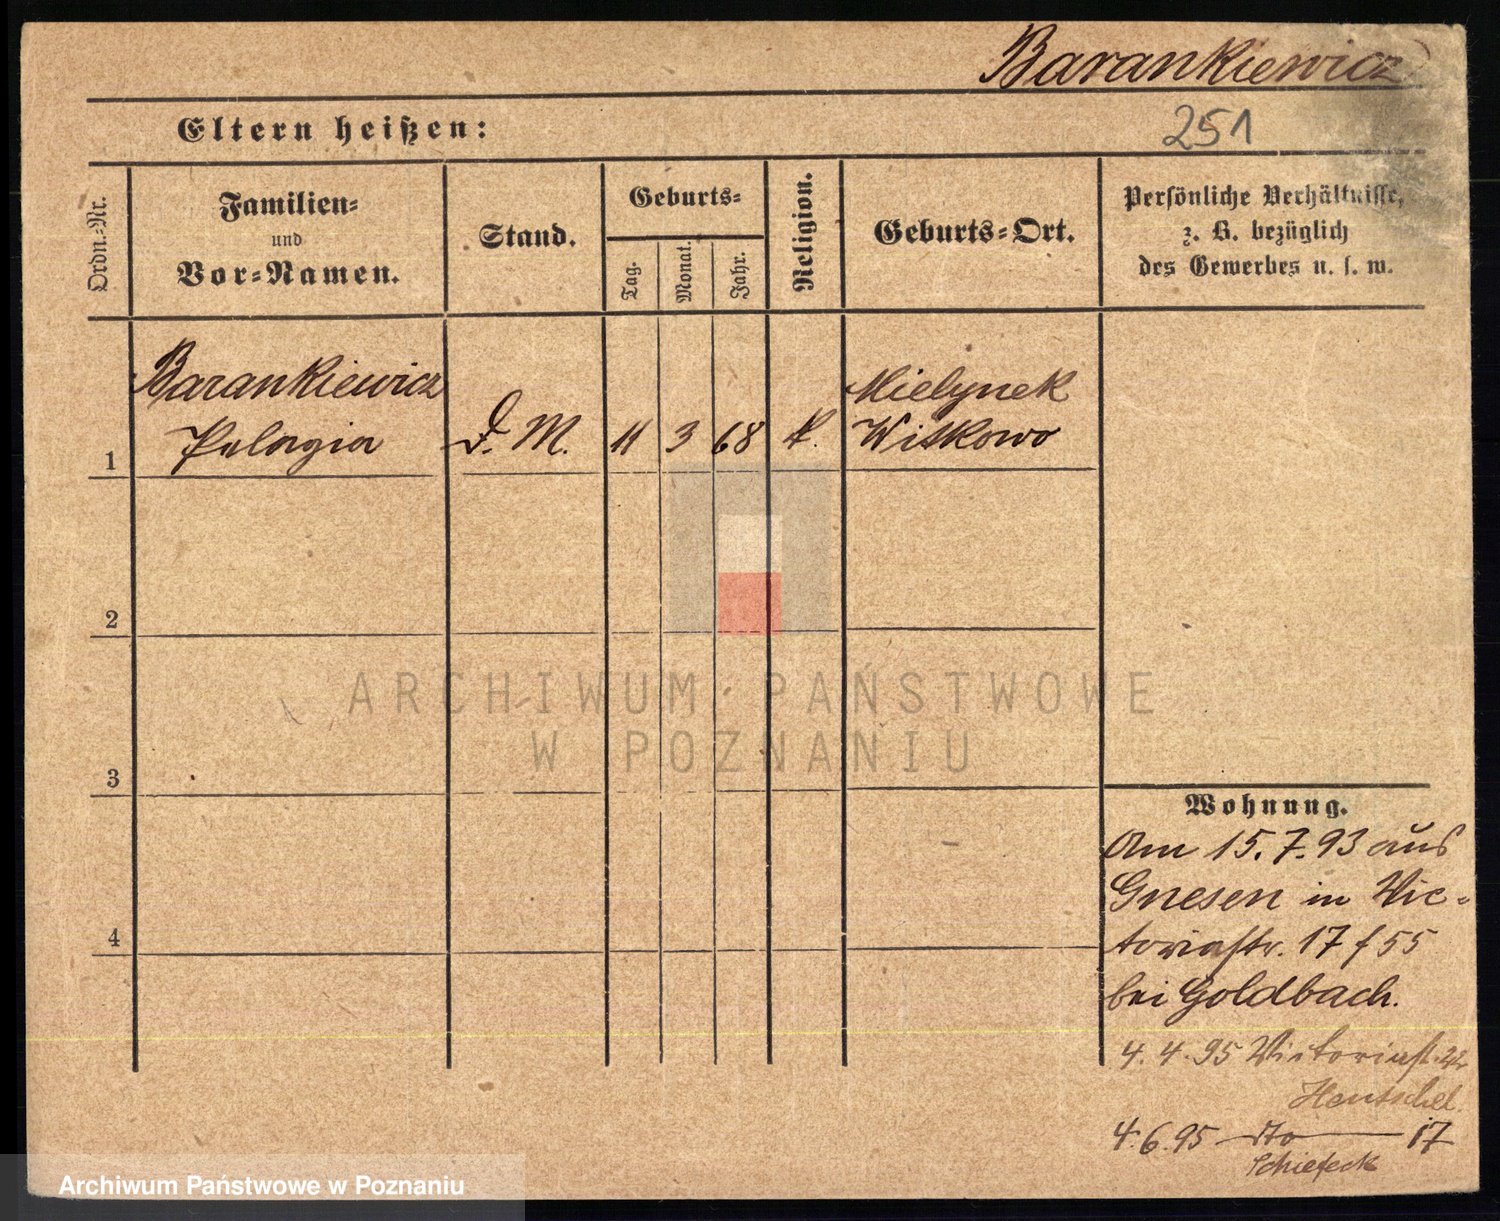 Barankiewicz
251
Eltern heißen:
Ordn.-Nr.
Familien-
und
Vor-Namen.
Stand.
Geburts-
Tag.
Monat.
Jahr.
Religion.
Geburts-Ort.
Persönliche Verhältnisse,
z. B. bezüglich
des Gewerbes u. s. w.
Barankiewicz
Pelagia
D. M.
11
3
68
k.
Mielynek
Witkowo
1
2
3
4
ARCHIWUM PAŃSTWOWE
W POZNANIU
Wohnung.
Am 15. 7. 93 aus
Gnesen in Vic-
toriastr. 17 f 55
bei Goldbach.
4. 4. 95 Victoriast.
Hentschel.
4. 6. 95 dto 17
Schiefeck
Archiwum Państwowe w Poznaniu